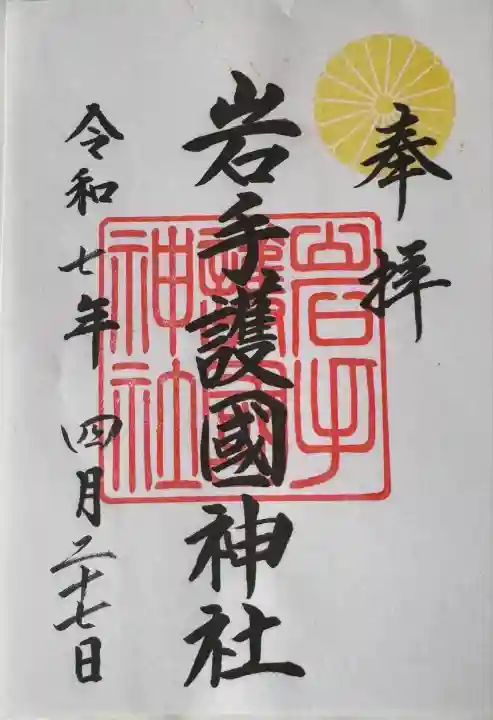 奉拝
岩手護國神社
岩手
護國
神社
令和七年四月二十七日